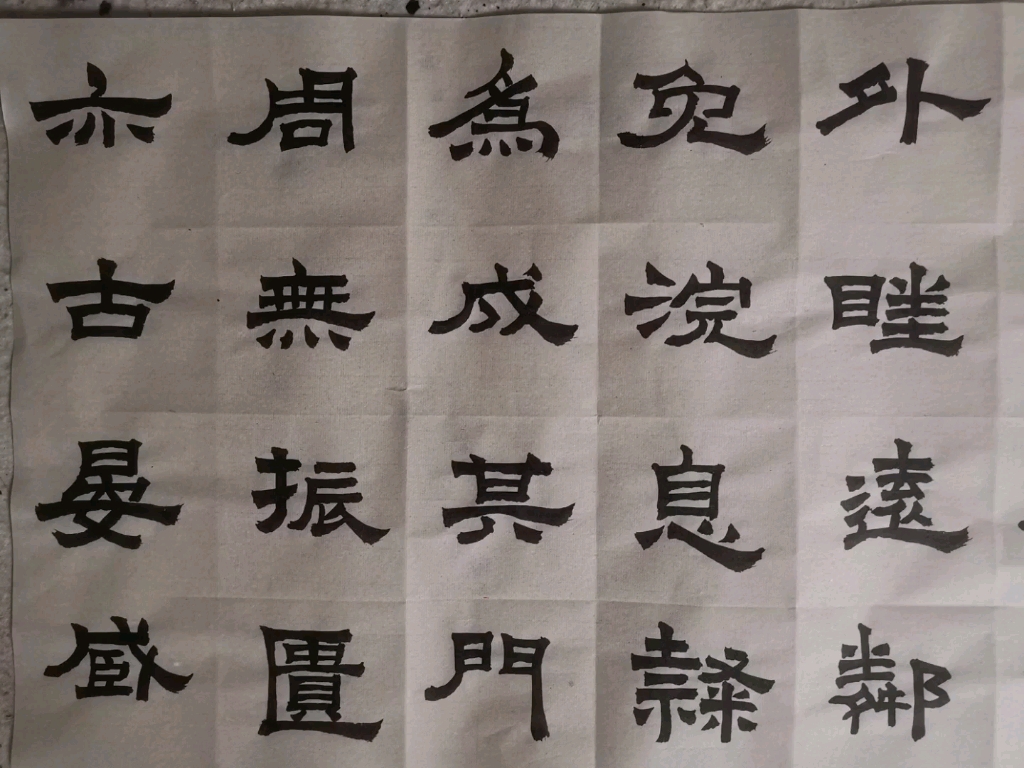 外眭遠鄰
浣息隸
為成其門
周無振匱
亦古晏